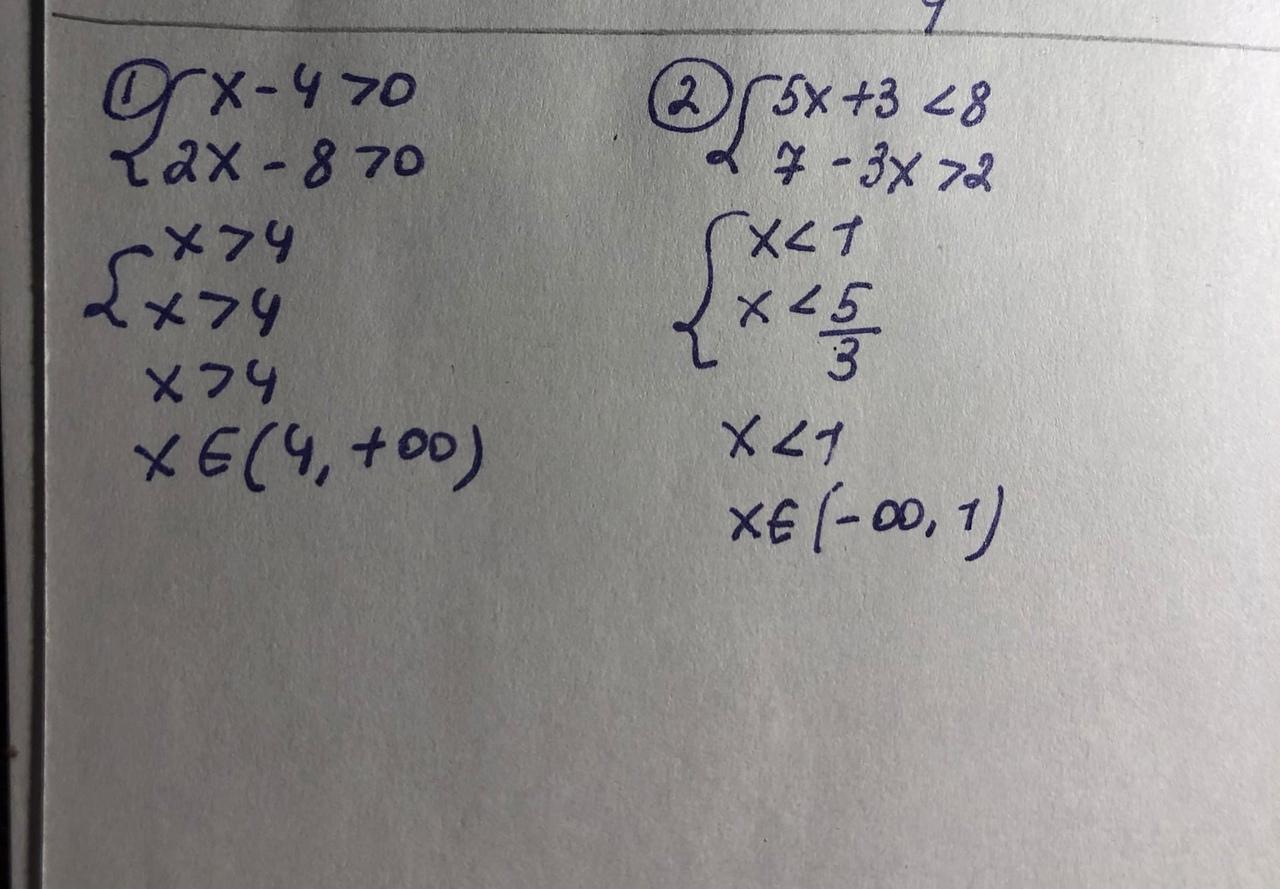 ① { x - 4 > 0
2x - 8 > 0
{ x > 4
x > 4
x > 4
x ∈ (4, +∞)
② { 5x + 3 < 8
7 - 3x > 2
{ x < 1
x < 5/3
x < 1
x ∈ (-∞, 1)